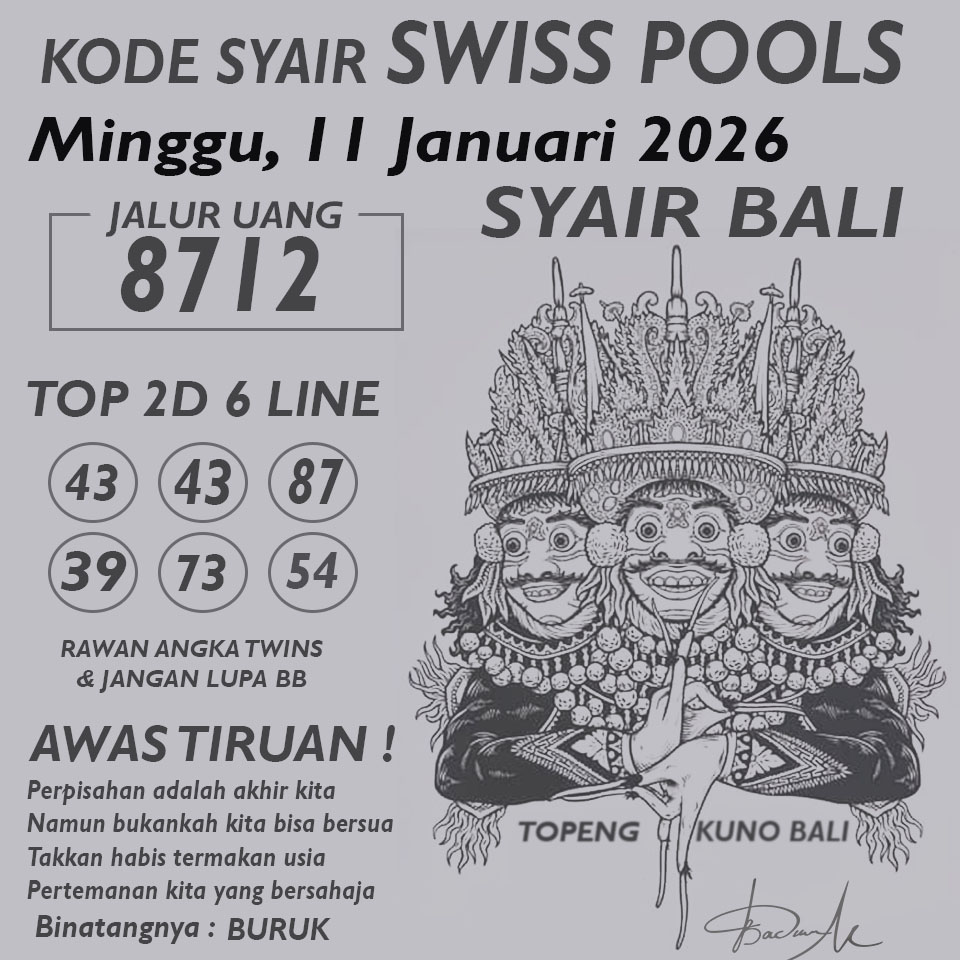 KODE SYAIR SWISS POOLS
Minggu, 11 Januari 2026
JALUR UANG
8712
SYAIR BALI
TOP 2D 6 LINE
43 43 87
39 73 54
RAWAN ANGKA TWINS
& JANGAN LUPA BB
AWAS TIRUAN !
Perpisahan adalah akhir kita
Namun bukankah kita bisa bersua
Takkan habis termakan usia
Pertemanan kita yang bersahaja
Binatangnya : BURUK
TOPENG KUNO BALI